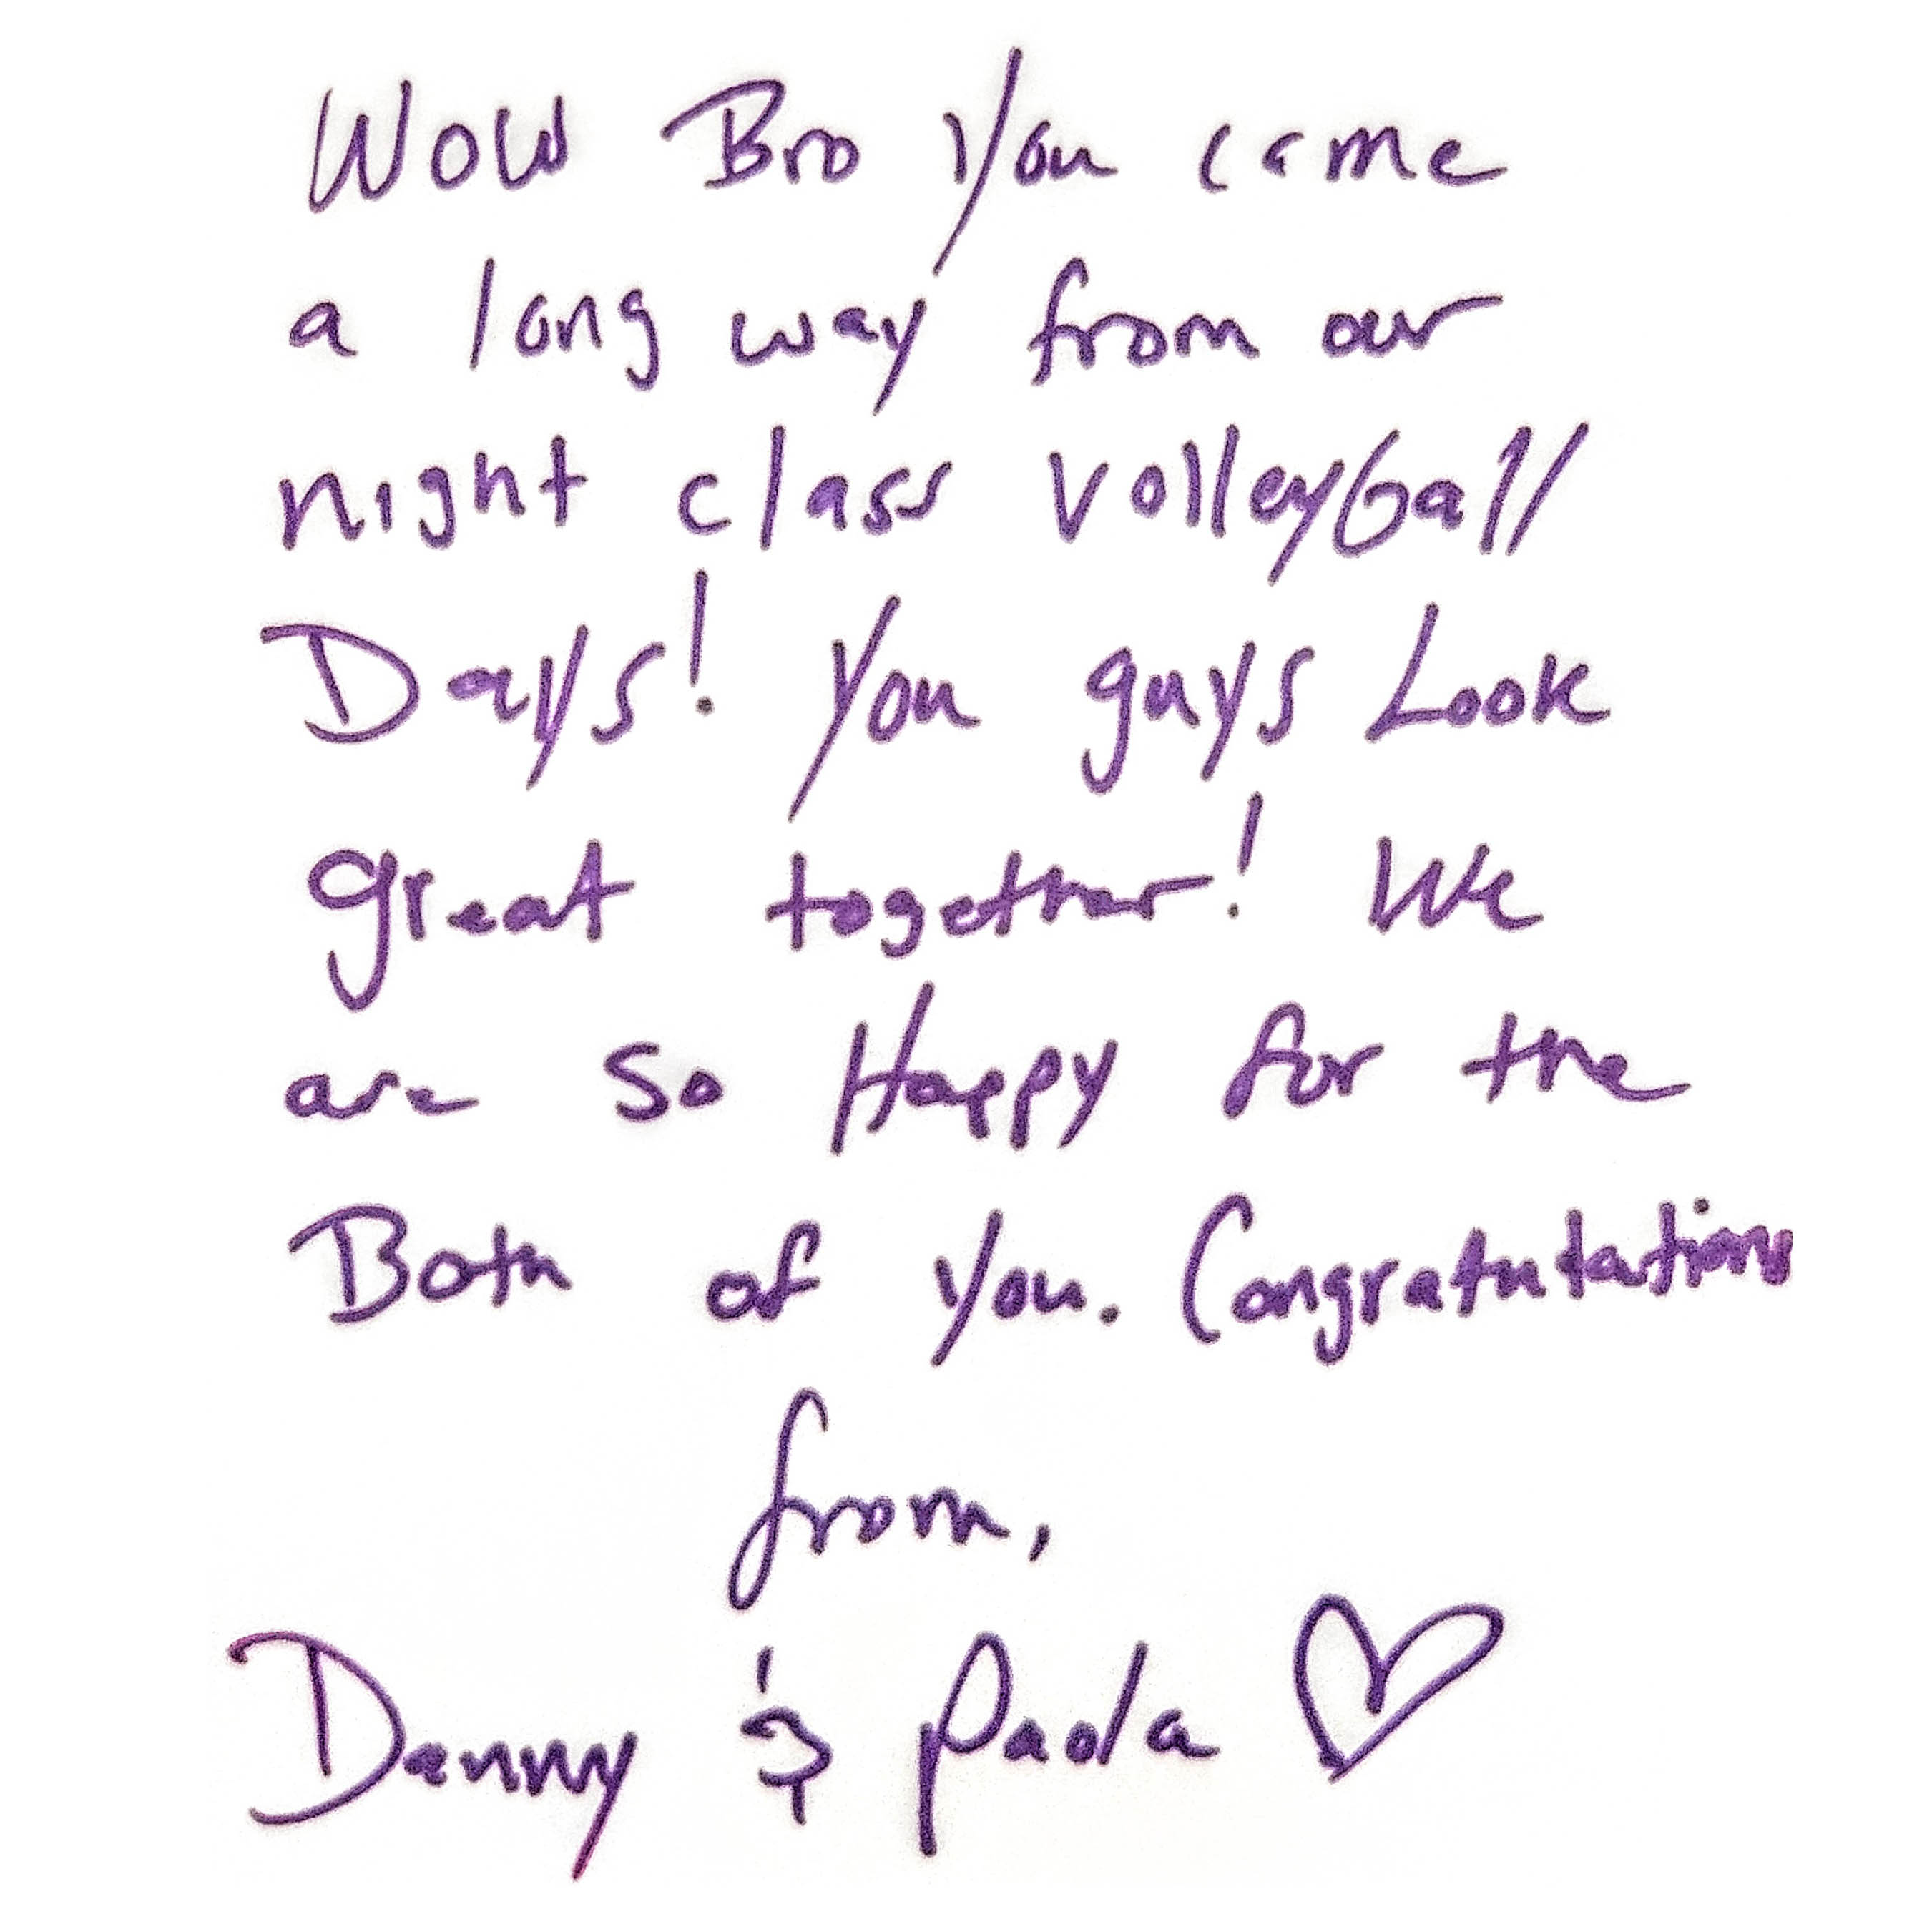 Wow Bro You came
a long way from our
night class volleyball
Days! You guys Look
great together! We
are so Happy for the
Both of you. Congratulations
from,
Danny & Paola ♡